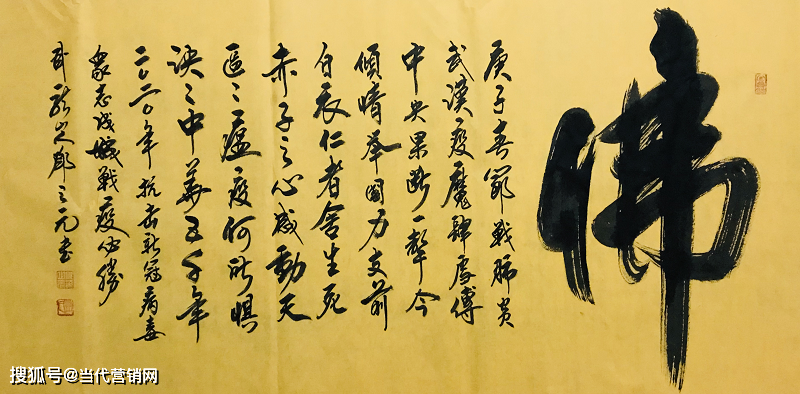 佛
庚子春節戰肺炎
武漢疫魔肆虐傳
中央果斷一聲令
傾情舉國力支前
白衣仁者舍生死
赤子之心感動天
區區瘟疫何所惧
泱泱中華五千年
二〇二〇年抗击新冠病毒
衆志成城戰疫必勝
之元書
搜狐号@当代营销网